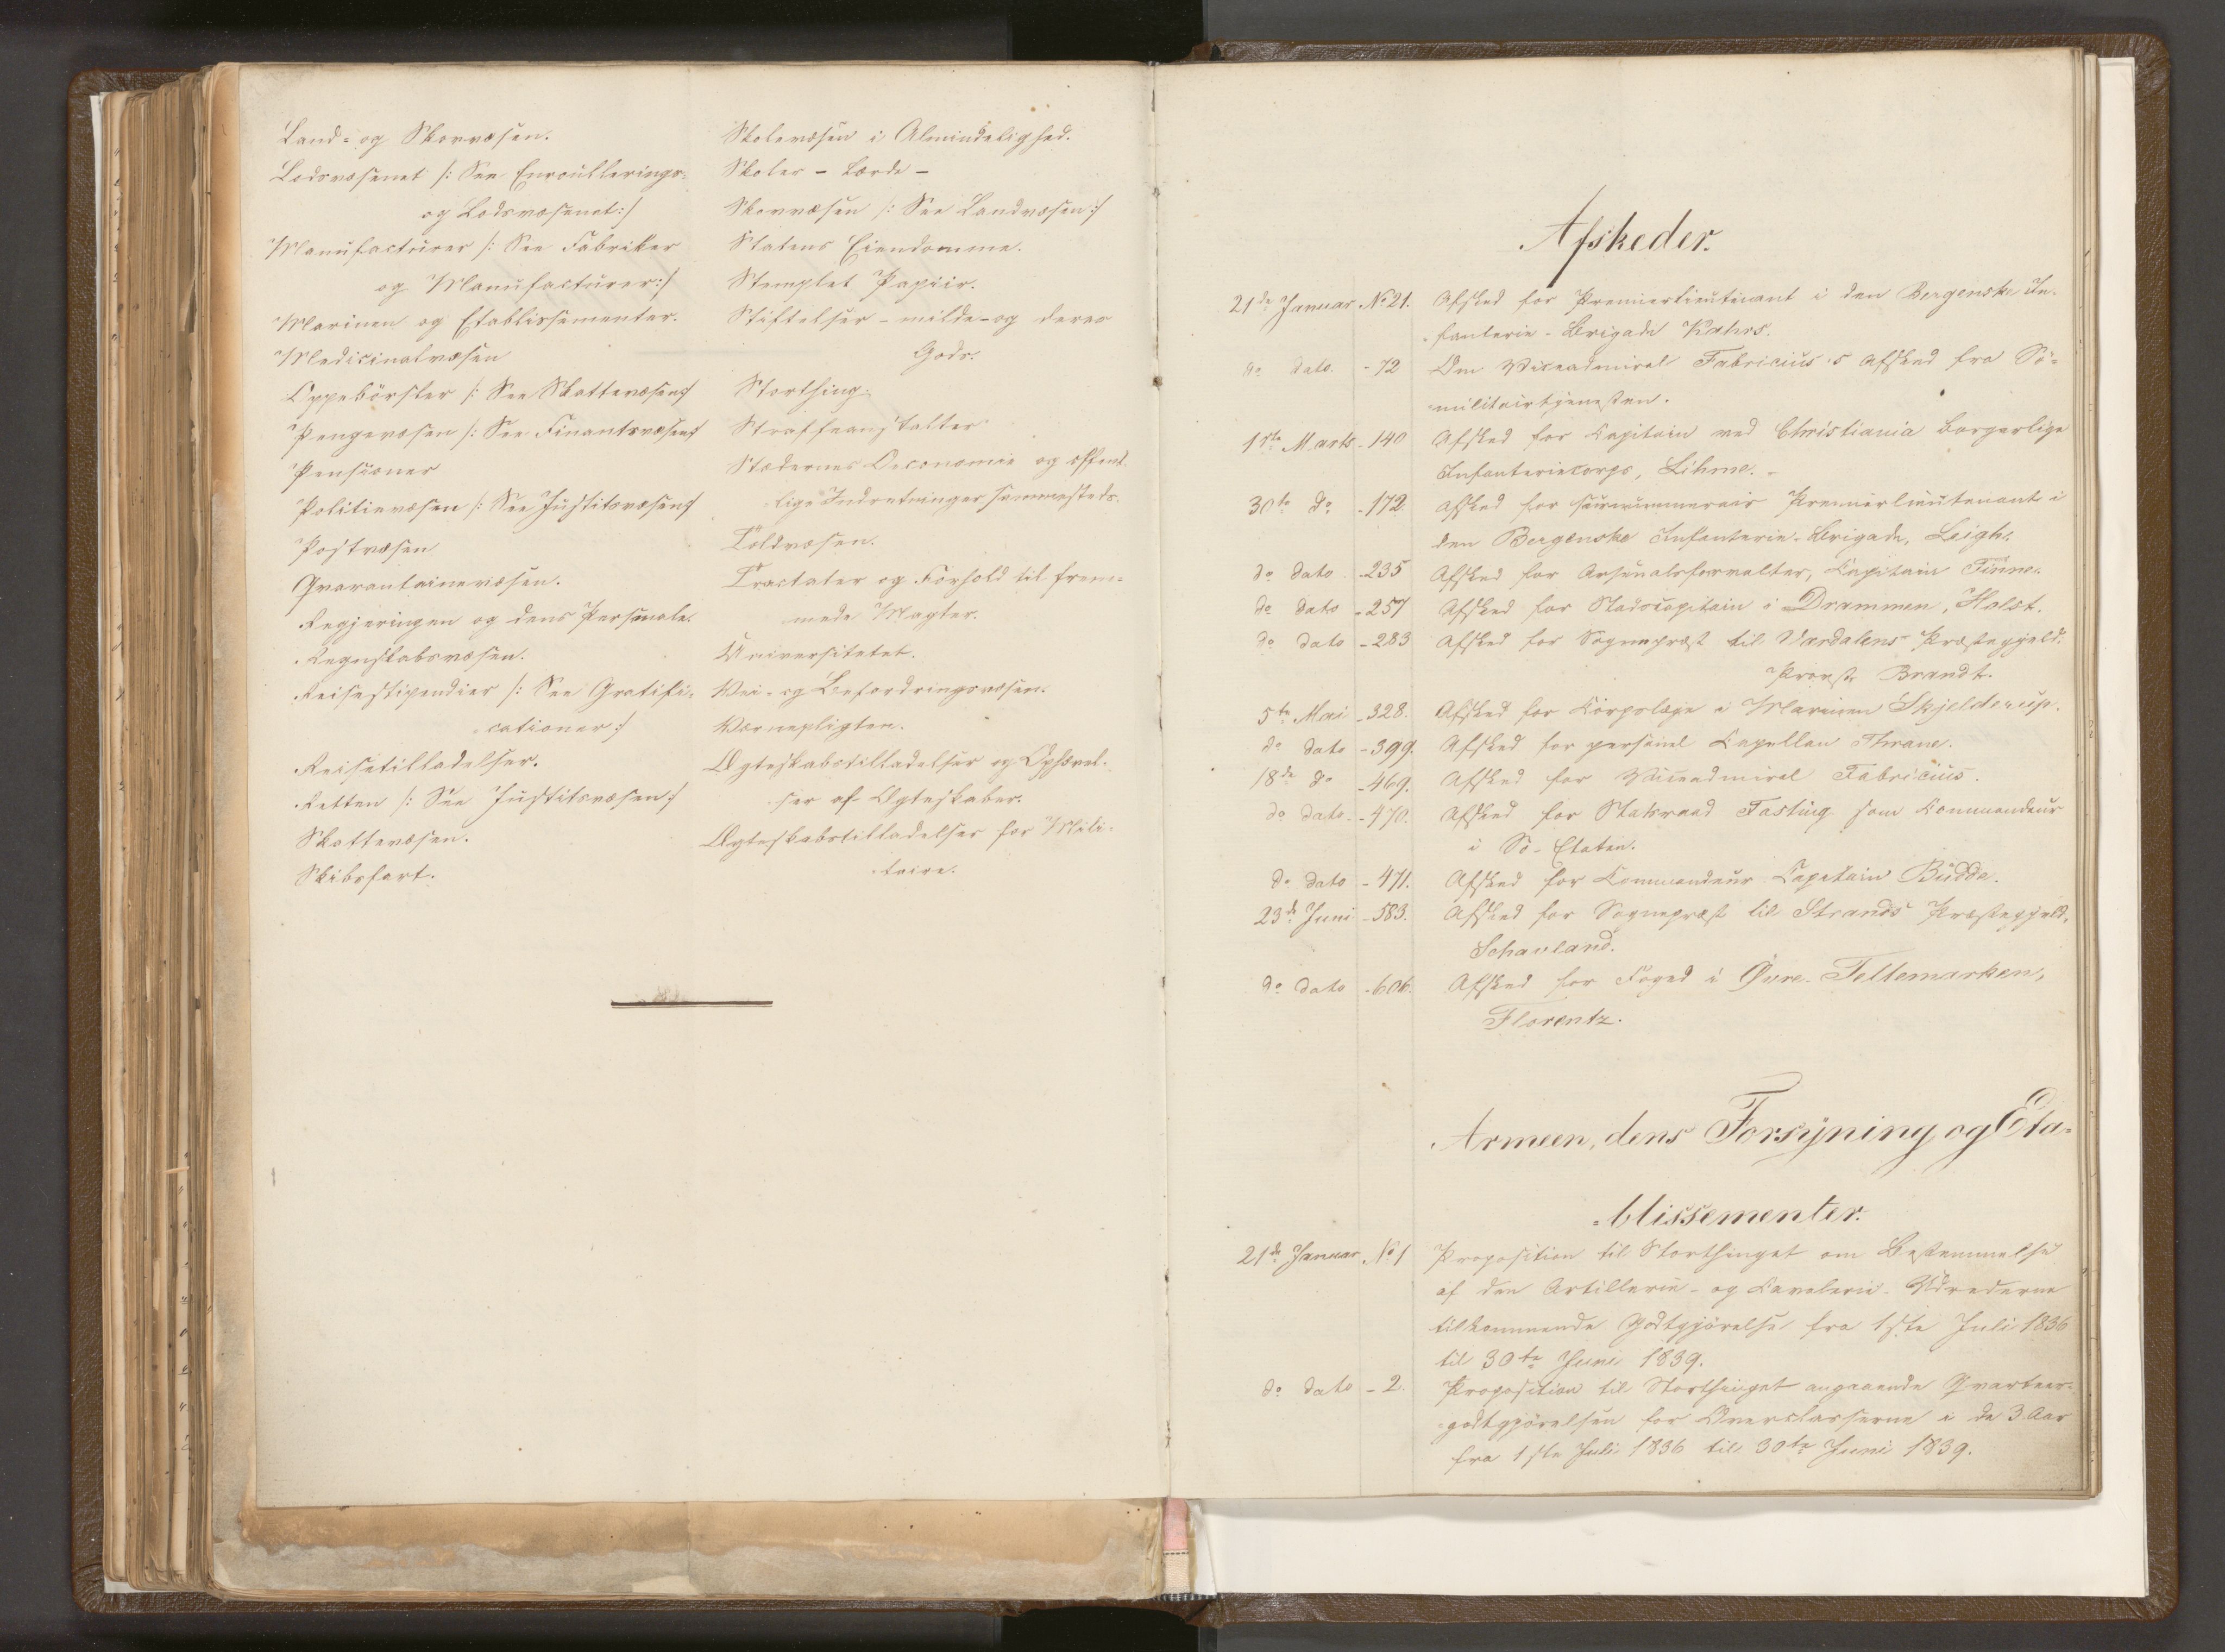 Land- og Skovvæsen.
Lodsvæsenet /: See Enroullerings-
og Lodsvæsenet :/
Manufacturer /: See Fabriker
og Manufacturer :/
Marinen og Etablissementer.
Medicinalvæsen
Oppebörsler /: See Skattevæsen :/
Pengevæsen /: See Finantsvæsen :/
Pensioner
Politievæsen /: See Justitsvæsen :/
Postvæsen
Qvarantainevæsen.
Regjeringen og dens Personale.
Regnskabsvæsen.
Reisestipendier /: See Gratifi-
cationer :/
Reisetilladelser.
Retten /: See Justitsvæsen :/
Skattevæsen.
Skibsfart.
Skolevæsen i Almindelighed.
Skoler - lærde -
Skovvæsen /: See Landvæsen :/
Statens Eiendomme.
Stemplet Papiir.
Stiftelser - milde - og deres
Gods.
Storthing.
Straffeanstalter
Stædernes Oeconomie og offent-
lige Indretninger sammesteds.
Toldvæsen.
Tractater og Forhold til frem-
mede Magter.
Universitetet.
Vei- og Befordringsvæsen.
Værnepligten.
Ægteskabstilladelser og Ophævel-
ser af Ægteskaber.
Ægteskabstilladelser for Mili-
taire.
Afskeder.
21de Januar No 21. Afsked for Premierlieutenant i den Bergenske In-
fanterie-Brigade Kahrs.
do dato - 72 Om Viceadmiral Fabricius's Afsked fra Sö-
militairtjenesten.
1ste Marts - 140 Afsked for Capitain ved Christiania borgerlige
Infanteriecorps, Lihme. -
30te do - 172. Afsked for surnummerair Premierlieutenant i
den Bergenske Infanterie-Brigade, Leigh.
do dato - 235 Afsked for Arsenalsforvalter, Capitain Finne.
do dato - 257 Afsked for Stadscapitain i Drammen, Holst.
do dato - 283 Afsked for Sognepræst til Værdalens Præstegjeld.
Provst Brandt.
5te Mai - 328. Afsked for Corpslæge i Marinen Skjelderup.
do dato - 399. Afsked for personel Capellan Thrane.
18de do - 469. Afsked for Viceadmiral Fabricius.
do dato - 470. Afsked for Statsraad Fasting som Commandeur
i Sö-Etaten.
do dato - 471. Afsked for Commandeur-Capitain Budde.
23de Juni - 583. Afsked for Sognepræst til Strands Præstegjeld,
Schanland.
do dato - 606. Afsked for Foged i Øvre-Tellemarken,
Florentz.
Armeen, dens Forsyning og Eta-
blissementer.
21de Januar No 1 Proposition til Storthinget om Bestemmelse
af den Artillerie- og Cavalerie-Udrederne
tilkommende Godtgjörelse fra 1ste Juli 1836
til 30te Juni 1839.
do dato - 2. Proposition til Storthinget angaaende Qvarteer-
godtgjörelsen for Overclasserne i de 3 Aar
fra 1ste Juli 1836 til 30te Juni 1839.